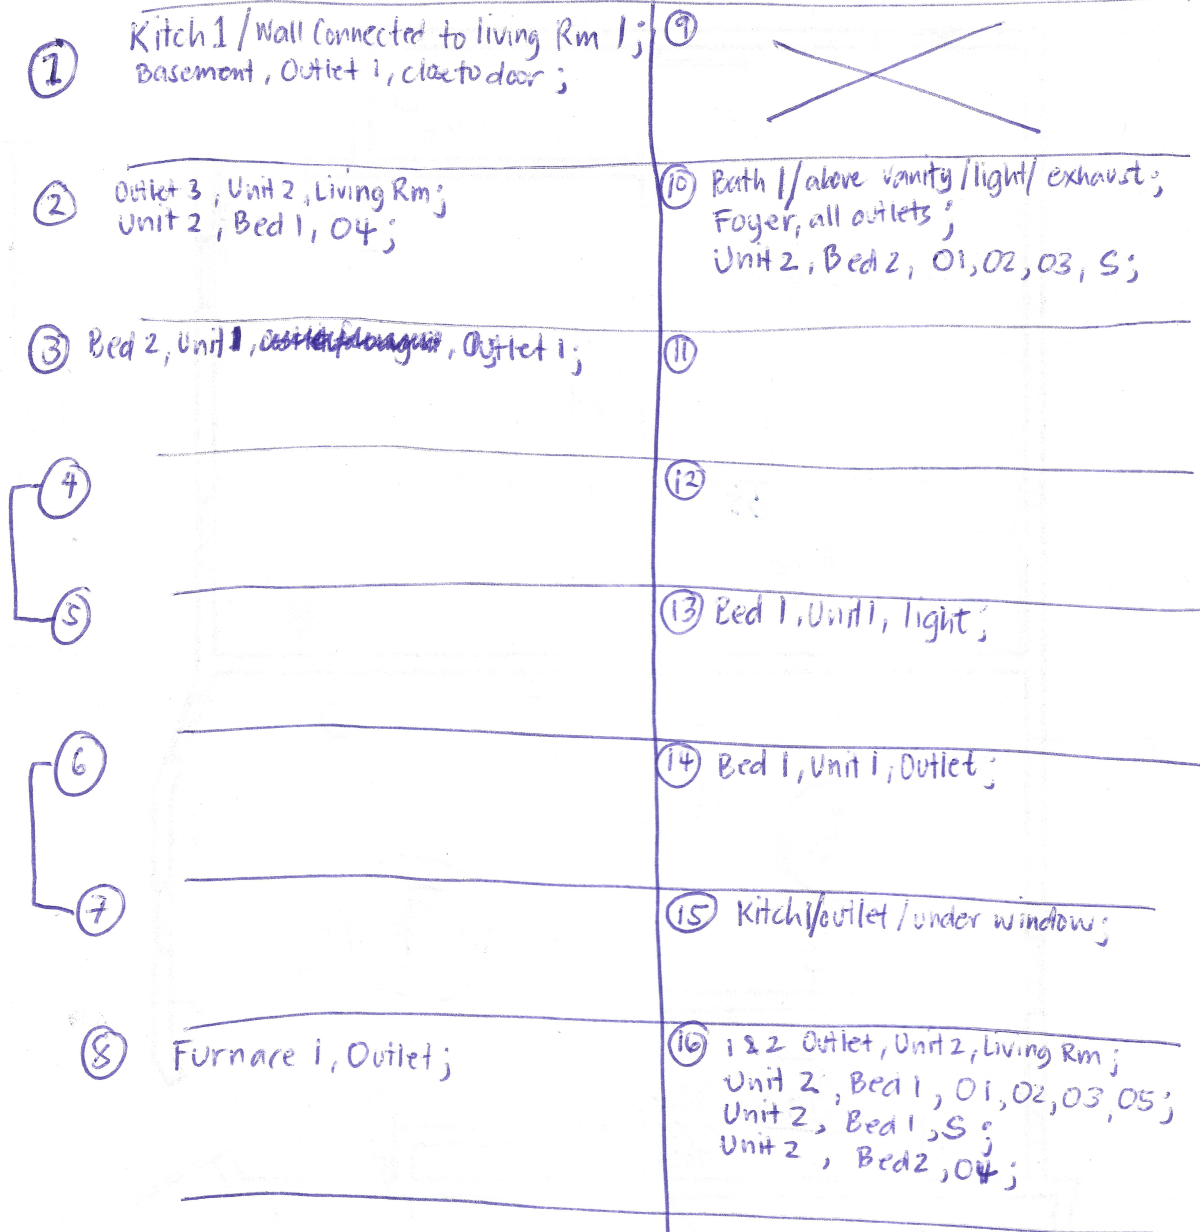 ① Kitch 1 / Wall Connected to living Rm 1;
Basement, Outlet 1, close to door;
② Outlet 3, Unit 2, Living Rm;
Unit 2, Bed 1, O4;
③ Bed 2, Unit 1, , Outlet 1;
④
⑤
⑥
⑦
⑧ Furnace 1, Outlet;
⑨
⑩ Bath 1/above vanity/light/ exhaust;
Foyer, all outlets;
Unit 2, Bed 2, O1, O2, O3, S;
⑪
⑫
⑬ Bed 1, Unit 1, light;
⑭ Bed 1, Unit 1, Outlet;
⑮ Kitch1/outlet/under window;
⑯ 1 & 2 Outlet, Unit 2, Living Rm;
Unit 2, Bed 1, O1, O2, O3, O5;
Unit 2, Bed 1, S;
Unit 2, Bed 2, O4;